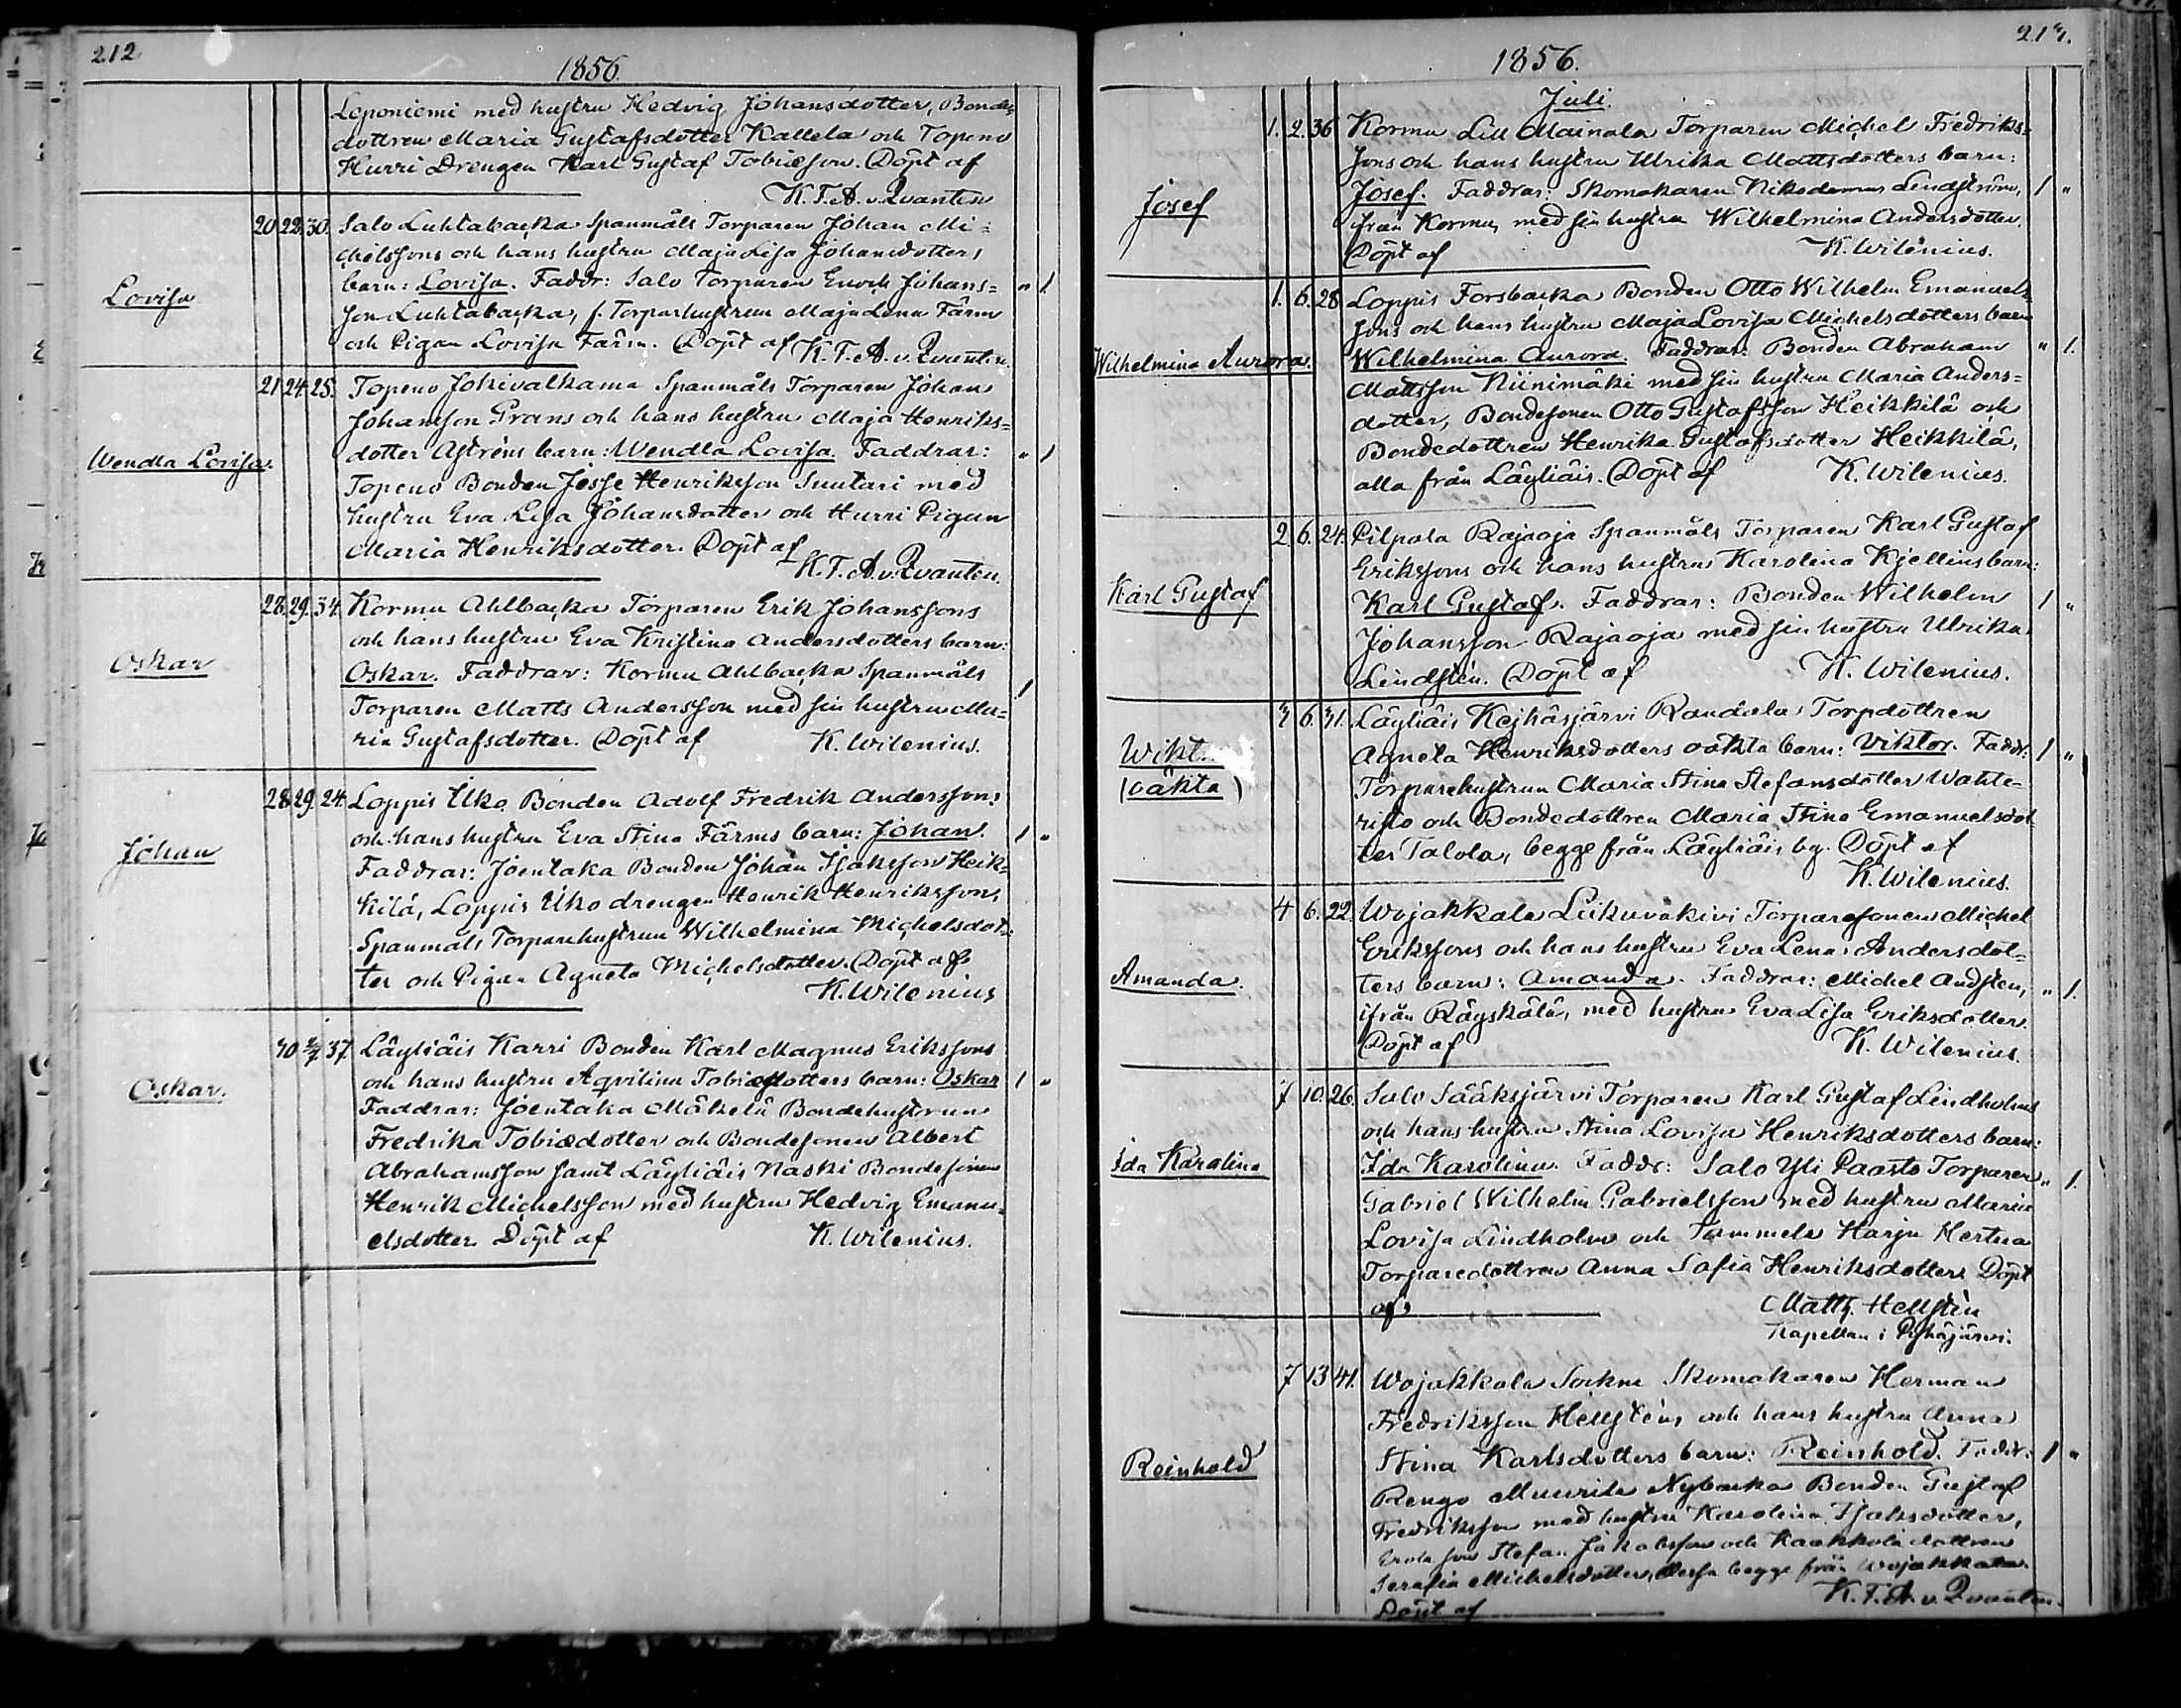 212
1856.
Leponiemi med hustru Hedvig Johansdotter, Bonde=
dottren Maria Gustafsdotter Kallela och Topeno
Hurri Drengen Karl Gustaf Tobiæson. Döpt af
K. T. A. v. Qvanten
Lovisa
20 22. 30. Salo Luhtabacka Spanmåls Torparen Johan Mi=
chelssons och hans hustru Maja Lisa Johansdotters
barn: Lovisa. Faddr: Salo Torparen Enoch Johans= " 1.
son Luhtabacka, f. Torparhustrun Maja Lena Färm
och Pigan Lovisa Färm. Döpt af K. T. A. v. Qvanten.
Wendla Lovisa.
21 24. 25. Topeno Jokivalkama Spanmåls Torparen Johan
Johansson Grans och hans hustru Maja Henriks=
dotter Astréns barn: Wendla Lovisa. Faddrar: " 1
Topeno Bonden Josse Henriksson Suutari med
hustru Eva Lisa Johansdotter och Hurri Pigan
Maria Henriksdotter. Döpt af
K. T. A. v. Qvanten.
Oskar
28. 29. 34. Kormu Ahlbacka Torparen Erik Johanssons
och hans hustru Eva Kristina Andersdotters barn:
Oskar. Faddrar: Kormu Ahlbacka Spanmåls 1
Torparen Matts Andersson med sin hustru Ma=
ria Gustafsdotter. Döpt af K. Wilenius.
Johan
28 29. 24. Loppis Uko Bonden Adolf Fredrik Anderssons
och hans hustru Eva Stina Färms barn: Johan. 1 "
Faddrar: Joentaka Bonden Johan Isaksson Heik=
kilä, Loppis Uko drengen Henrik Henriksson,
Spanmåls Torparehustrun Wilhelmina Michelsdot=
ter och Pigan Agneta Michelsdotter. Döpt af
K. Wilenius
Oskar.
30 2/7 37 Läyliäis Karri Bonden Karl Magnus Erikssons
och hans hustru Aqvilina Tobiædotters barn: Oskar 1 "
Faddrar: Joentaka Mäkelä Bondehustrun
Fredrika Tobiædotter och Bondesonen Albert
Abrahamsson samt Läyliäis Naski Bondesonen
Henrik Michelsson med hustru Hedvig Emanu=
elsdotter. Döpt af K. Wilenius.
213.
1856.
Juli.
Josef
1. 2. 36 Kormu Lill Mainala Torparen Michel Fredriks=
sons och hans hustru Ulrika Mattsdotters barn:
Josef. Faddrar: Skomakaren Nikodemus Lindström, 1 "
ifrån Kormu, med sin hustru Wilhelmina Andersdotter.
Döpt af K. Wilenius.
Wilhelmina Aurora.
1. 6. 28 Loppis Forsbacka Bonden Otto Wilhelm Emanuels=
sons och hans hustru Maja Lovisa Michelsdotters barn
Wilhelmina Aurora. Faddrar: Bonden Abraham " 1.
Mattsson Niinimäki med sin hustru Maria Anders=
dotter, Bondesonen Otto Gustafsson Heikkilä och
Bondedottren Henrika Gustafsdotter Heikkilä,
alla från Läyliäis. Döpt af K. Wilenius.
Karl Gustaf
2. 6. 24. Pilpala Rajaoja Spanmåls Torparen Karl Gustaf
Erikssons och hans hustru Karolina Kjellins barn:
Karl Gustaf. Faddrar: Bonden Wilhelm 1 "
Johansson Rajaoja med sin hustru Ulrika
Lindstén. Döpt af K. Wilenius.
Wikt
(oäkta)
3 6. 31. Läyliäis Kejhäsjärvi Randala Torpdottren
Agneta Henriksdotters oäkta barn: Viktor. Faddr: 1 "
Torparehustrun Maria Stina Stefansdotter Wahte-
risto och Bondedottren Maria Stina Emanuelsdot
ter Talola, begge från Läyliäis by. Döpt af
K. Wilenius.
Amanda.
4 6. 22 Wojakkala Liikuvakivi Torparesonen Michel
Erikssons och hans hustru Eva Lena Andersdot=
ters barn: Amanda. Faddrar: Michel Andsten, " 1.
ifrån Räyskälä, med hustru Eva Lisa Eriksdotter.
Döpt af K. Wilenius.
Ida Karolina
7 10. 26. Salo Sääksjärvi Torparen Karl Gustaf Lindholms
och hans hustru Stina Lovisa Henriksdotters barn:
Ida Karolina. Faddr: Salo Yli Paasto Torparen " 1.
Gabriel Wilhelm Gabrielsson med hustru Maria
Lovisa Lindholm och Tammela Harju Hertua
Torparedottren Anna Sofia Henriksdotter. Döpt
af Matts. Hellstén
Kapellan i Pyhäjärvi.
Reinhold
7 13 41. Wojakkala Sockne Skomakaren Herman
Fredriksson Hellsténs och hans hustru Anna
Stina Karlsdotters barn: Reinhold. Faddr: 1 "
Rengo Muurila Nybacka Bonden Gustaf
Fredriksson med hustru Karolina Isaksdotter,
Stefan Jakobsson och Kaakkola dottren
Serafia Michelsdotter, dessa begge från Wojakkala.
Döpt af K. T. A. v. Qvanten.